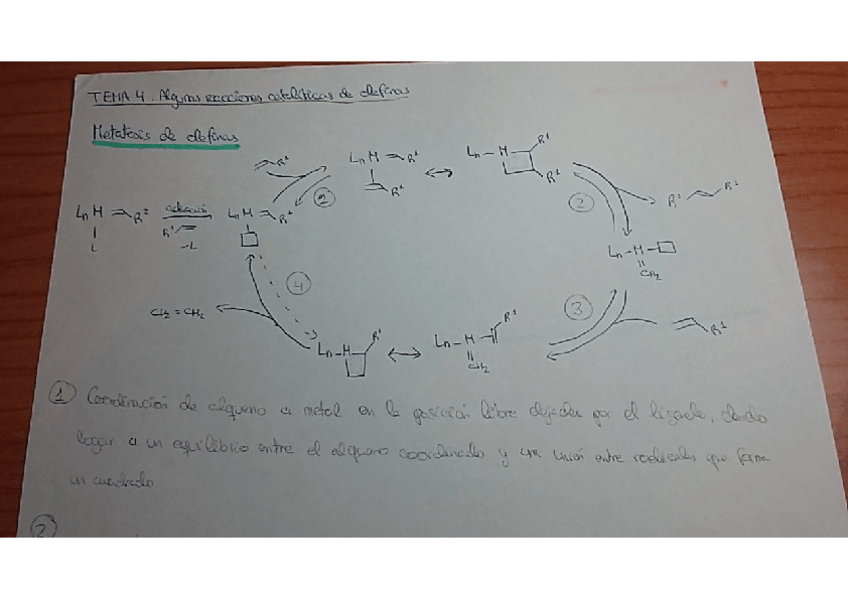 TEMA 4. Algunas reacciones catalíticas de olefinas
Metatesis de olefinas
R¹
LnM R¹
R¹
Ln-M R¹
R¹
R¹ R¹
LnM R²
L
activación
R¹
-L
LnM R¹
2
2
Ln-M
CH₂
3
R¹
4
CH₂=CH₂
Ln-M R¹
Ln-M R¹
CH₂
1 Coordinación de alqueno a metal en la posición libre dejada por el ligando, dando
lugar a un equilibrio entre el alqueno coordinado y una unión entre radicales que forma
un cuadrado
2